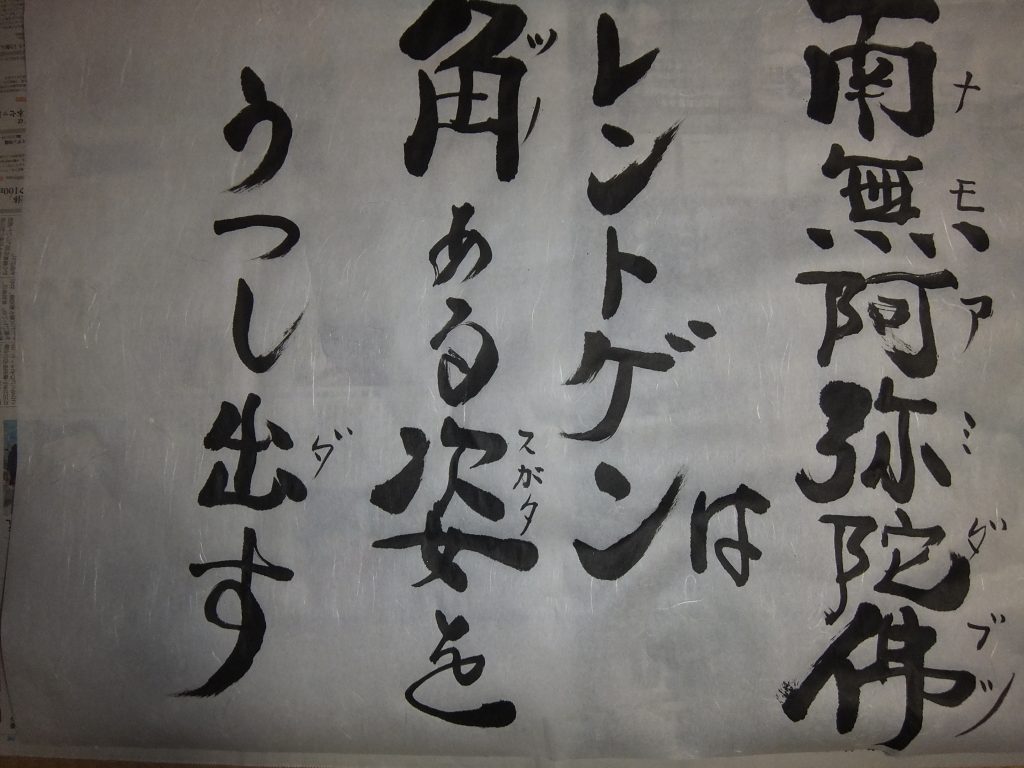 南無阿弥陀佛
ナモアミダブツ
レントゲン
は
角ある姿を
ツノ
スガタ
うつし出す
ダ